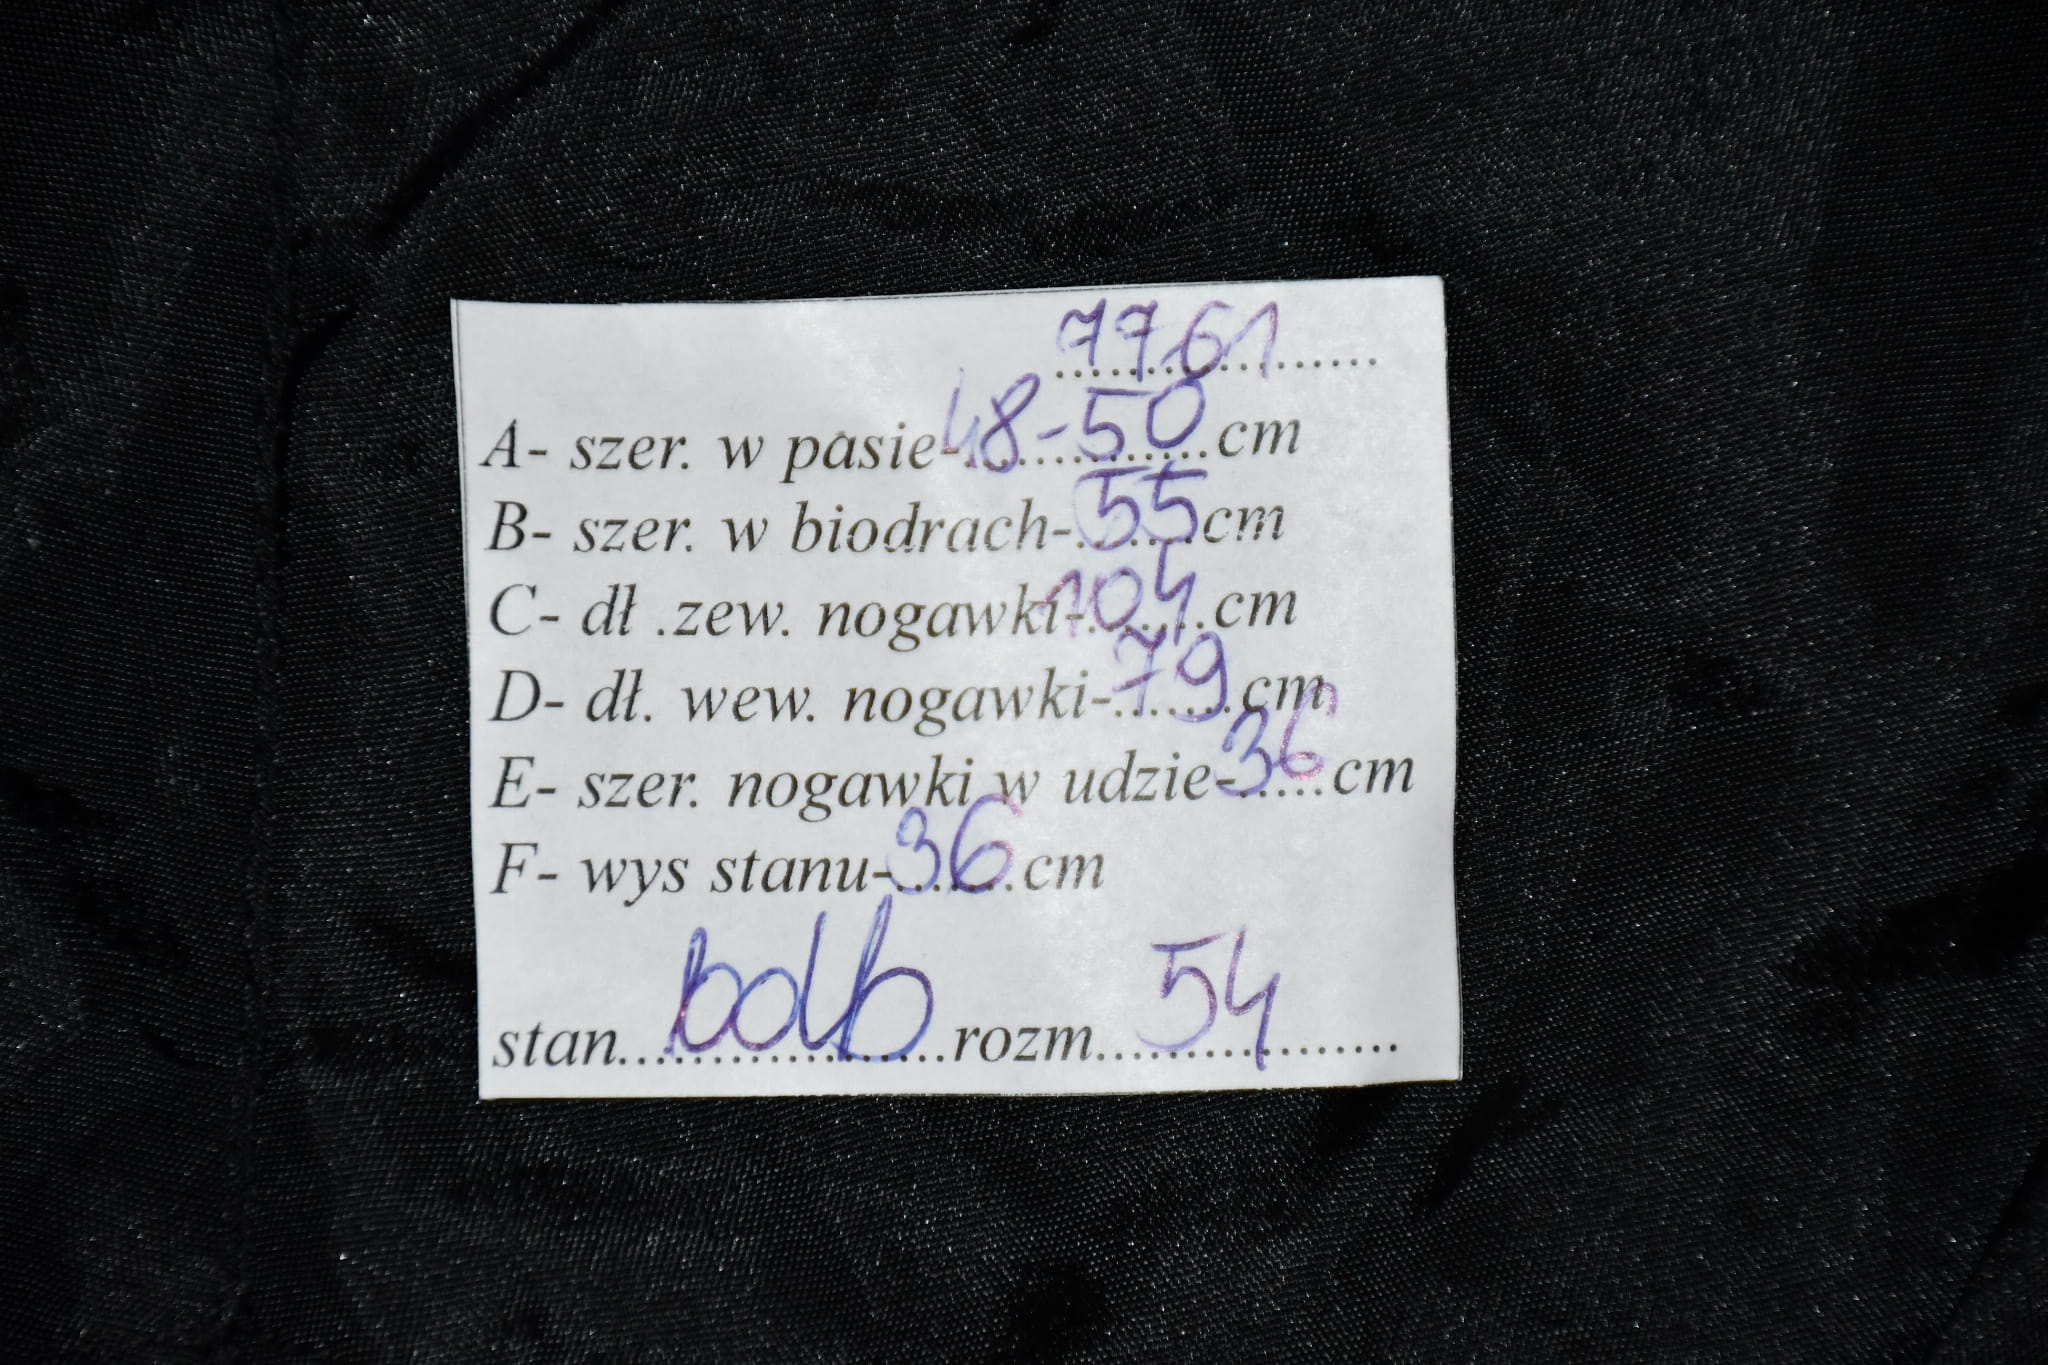 7761
A- szer. w pasie-48-50cm
B- szer. w biodrach-55cm
C- dł .zew. nogawki-104cm
D- dł. wew. nogawki-79cm
E- szer. nogawki w udzie-36cm
F- wys stanu-36cm
stan.....bdb.....rozm.....54.....